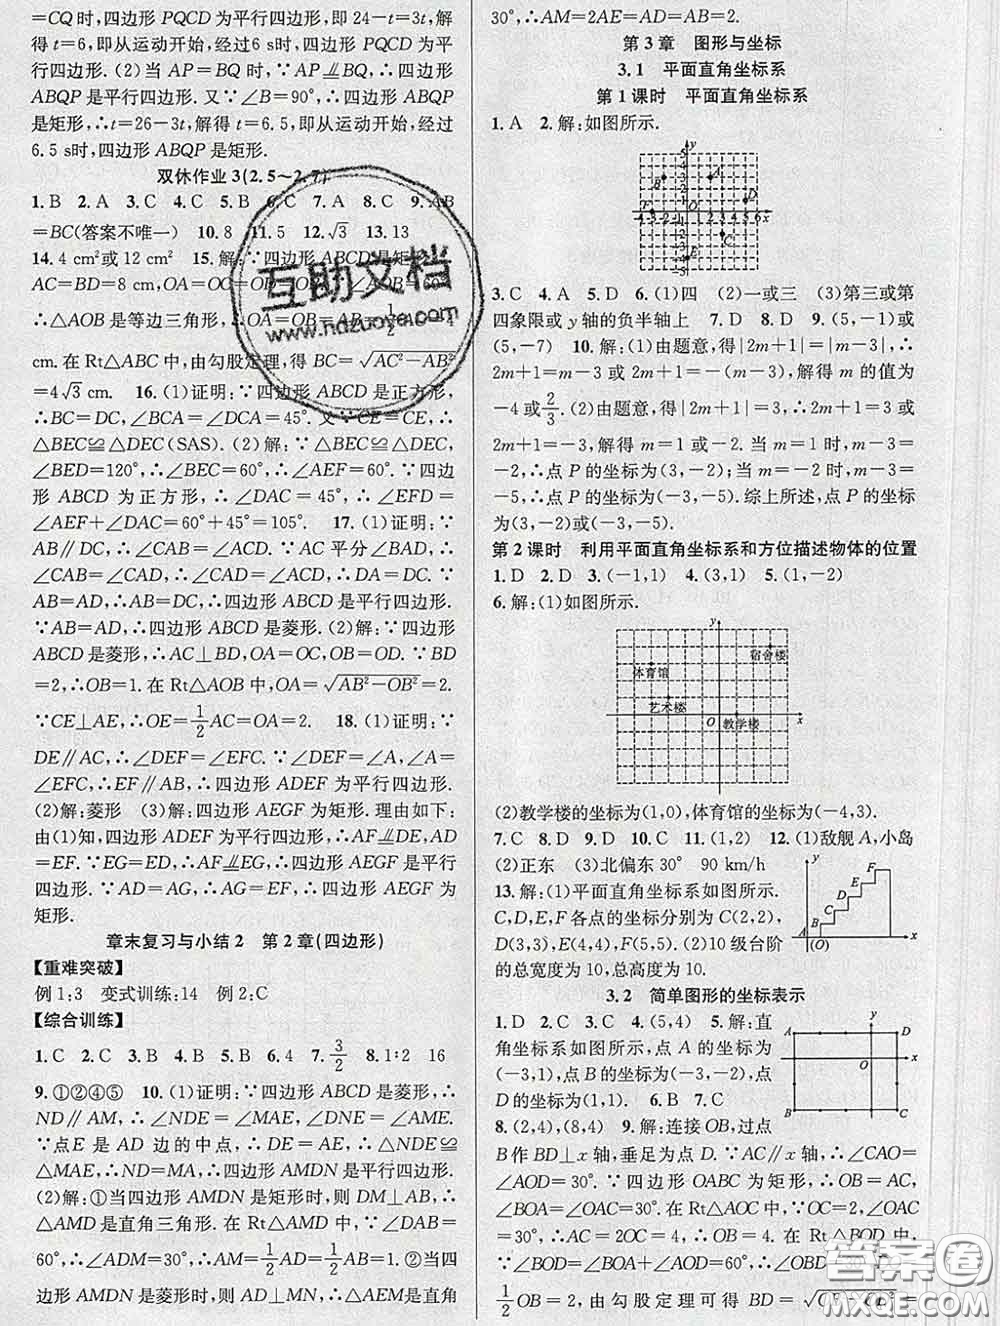 =CQ时,四边形PQCD为平行四边形,即24-t=3t,解
得t=6,即从运动开始,经过6 s时,四边形PQCD为平
行四边形.(2)当AP=BQ时,∵AP⫽BQ,∴四边形
ABQP是平行四边形.又∵∠B=90°,∴四边形ABQP
是矩形,∴t=26-3t,解得t=6.5,即从运动开始,经过
6.5 s时,四边形ABQP是矩形.
双休作业3(2.5~2.7)
1.B 2.A 3.C 4.C 5.B 6.C 7.A 8.C 9.AB
=BC(答案不唯一) 10.8 11.5 12.√3 13.13
14.4 cm²或12 cm² 15.解:∵四边形ABCD是矩形,
AC=BD=8 cm,
∴△AOB是等边三角形,∴OA=OB=
cm.在Rt△ABC中,由勾股定理,得BC=√AC²-AB²
=4√3 cm. 16.(1)证明:∵四边形ABCD是正方形,
∴BC=DC,∠BCA=∠DCA=45°.又∵CE=CE,∴
△BEC≌△DEC(SAS).(2)解:∵△BEC≌△DEC,
∠BED=120°,∴∠BEC=60°,∴∠AEF=60°.∵四边
形ABCD为正方形,∴∠DAC=45°,∴∠EFD=
∠AEF+∠DAC=60°+45°=105°. 17.(1)证明:∵
AB∥DC,∴∠CAB=∠ACD.∵AC平分∠BAD,∴
∠CAB=∠CAD,∴∠CAD=∠ACD,∴DA=DC.∵
AB=AD,∴AB=DC,∴四边形ABCD是平行四边形.
∵AB=AD,∴四边形ABCD是菱形.(2)解:∵四边形
ABCD是菱形,∴AC⊥BD,OA=OC,OB=OD.∵BD
=2,∴OB=1.在Rt△AOB中,OA=√AB²-OB²=2.
∵CE⊥AE,∴OE=1/2AC=OA=2. 18.(1)证明:∵
DE∥AC,∴∠DEF=∠EFC.∵∠DEF=∠A,∴∠A
=∠EFC,∴EF∥AB,∴四边形ADEF为平行四边形.
(2)解:菱形 (3)解:四边形AEGF为矩形.理由如下:
由(1)知,四边形ADEF为平行四边形,∴AF⫽DE,AD
=EF.∵EG=DE,∴AF⫽EG,∴四边形AEGF是平行
四边形.∵AD=AG,∴AG=EF,∴四边形AEGF为
矩形.
章末复习与小结2 第2章(四边形)
【重难突破】
例1:3 变式训练:14 例2:C
【综合训练】
1.C 2.C 3.B 4.B 5.B 6.4 7.3/2 8.1:2 16
9.①②④⑤ 10.(1)证明:∵四边形ABCD是菱形,∴
ND∥AM,∴∠NDE=∠MAE,∠DNE=∠AME.
∵点E是AD边的中点,∴DE=AE,∴△NDE≌
△MAE,∴ND=MA,∴四边形AMDN是平行四边形.
(2)解:①当四边形AMDN是矩形时,则DM⊥AB,∴
△AMD是直角三角形.在Rt△AMD中,∵∠DAB=
60°,∴∠ADM=30°,∴AM=1/2AD=1/2AB=1.②当四
边形AMDN是菱形时,则AD⊥MN,∴△AEM是直角
30°,∴AM=2AE=AD=AB=2.
第3章 图形与坐标
3.1 平面直角坐标系
第1课时 平面直角坐标系
1.A 2.解:如图所示.
3.C 4.A 5.D 6.(1)四 (2)一或三 (3)第三或第
四象限或y轴的负半轴上 7.D 8.D 9.(5,-1)或
(5,-7) 10.解:(1)由题意,得|2m+1|=|m-3|,∴
2m+1=m-3或2m+1=-(m-3),解得m的值为
-4或2/3.(2)由题意,得|2m+1|=3,∴2m+1=3或
2m+1=-3,解得m=1或-2.当m=1时,m-3=
-2,∴点P的坐标为(3,-2);当m=-2时,m-3=
-5,∴点P的坐标为(-3,-5).综上所述,点P的坐标
为(3,-2)或(-3,-5).
第2课时 利用平面直角坐标系和方位描述物体的位置
1.D 2.D 3.(-1,1) 4.(3,1) 5.(1,-2)
6.解:(1)如图所示.
宿舍楼
体育馆
艺术楼
教学楼
(2)教学楼的坐标为(1,0),体育馆的坐标为(-4,3).
7.C 8.D 9.D 10.C 11.(1,2) 12.(1)敌舰A,小岛
(2)正东 (3)北偏东30° 90 km/h
13.解:(1)平面直角坐标系如图所示.
C,D,E,F各点的坐标分别为C(2,2),
D(3,3),E(4,4),F(5,5).(2)10级台阶
的总宽度为10,总高度为10.
3.2 简单图形的坐标表示
1.D 2.C 3.C 4.(5,4) 5.解:直
角坐标系如图所示,点A的坐标为
(-3,1),点B的坐标为(-3,-1),点
D的坐标为(1,1). 6.B 7.C
8.(2,4),(8,4) 9.解:连接OB,过点
B作BD⊥x轴,垂足为点D.∵AC∥x轴,∴∠CAO=
∠AOD=30°.∵四边形OABC为矩形,∴OB=AC,
∠BOA=∠OAC=30°.在Rt△OAC中,∵OC=2,∠OAC
=30°,∴AC=2OC=4,∴OB=4.在Rt△BOD中,
∵∠BOD=∠BOA+∠AOD=60°,∴∠OBD=30°,∴OD=
1/2OB=2,由勾股定理可得BD=
互助文档
www.hdzuoye.com
答案圈
MXQE.COM